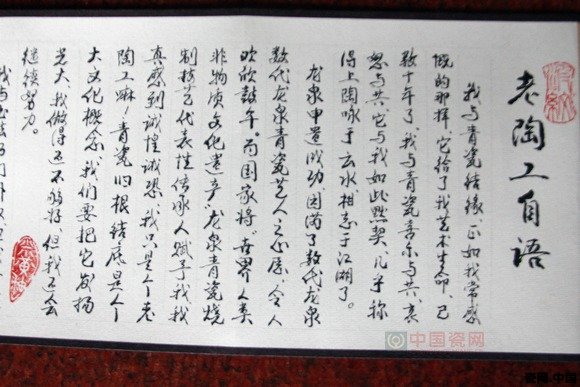 老陶工自语
我与青瓷结缘,正如我常感
慨的那样,它给了我艺术生命,已
数十年了,我与青瓷喜尔与共,哀
怨与共,它与我如此默契,几乎称
得上陶咏于云水相忘于江湖了。
龙泉申遗成功,圆满了数代龙泉
数代龙泉青瓷艺人之心愿,令人
欢欣鼓午。而国家将“世界人类
非物质文化遗产”龙泉青瓷烧
制技艺代表性传承人赋予我,我
真感到诚惶诚恐,我只是个老
陶工嘛!青瓷归根结底是个
大文化概念,我们要把它发扬
光大,我做得还不够好,但我会
继续努力。
中国瓷网